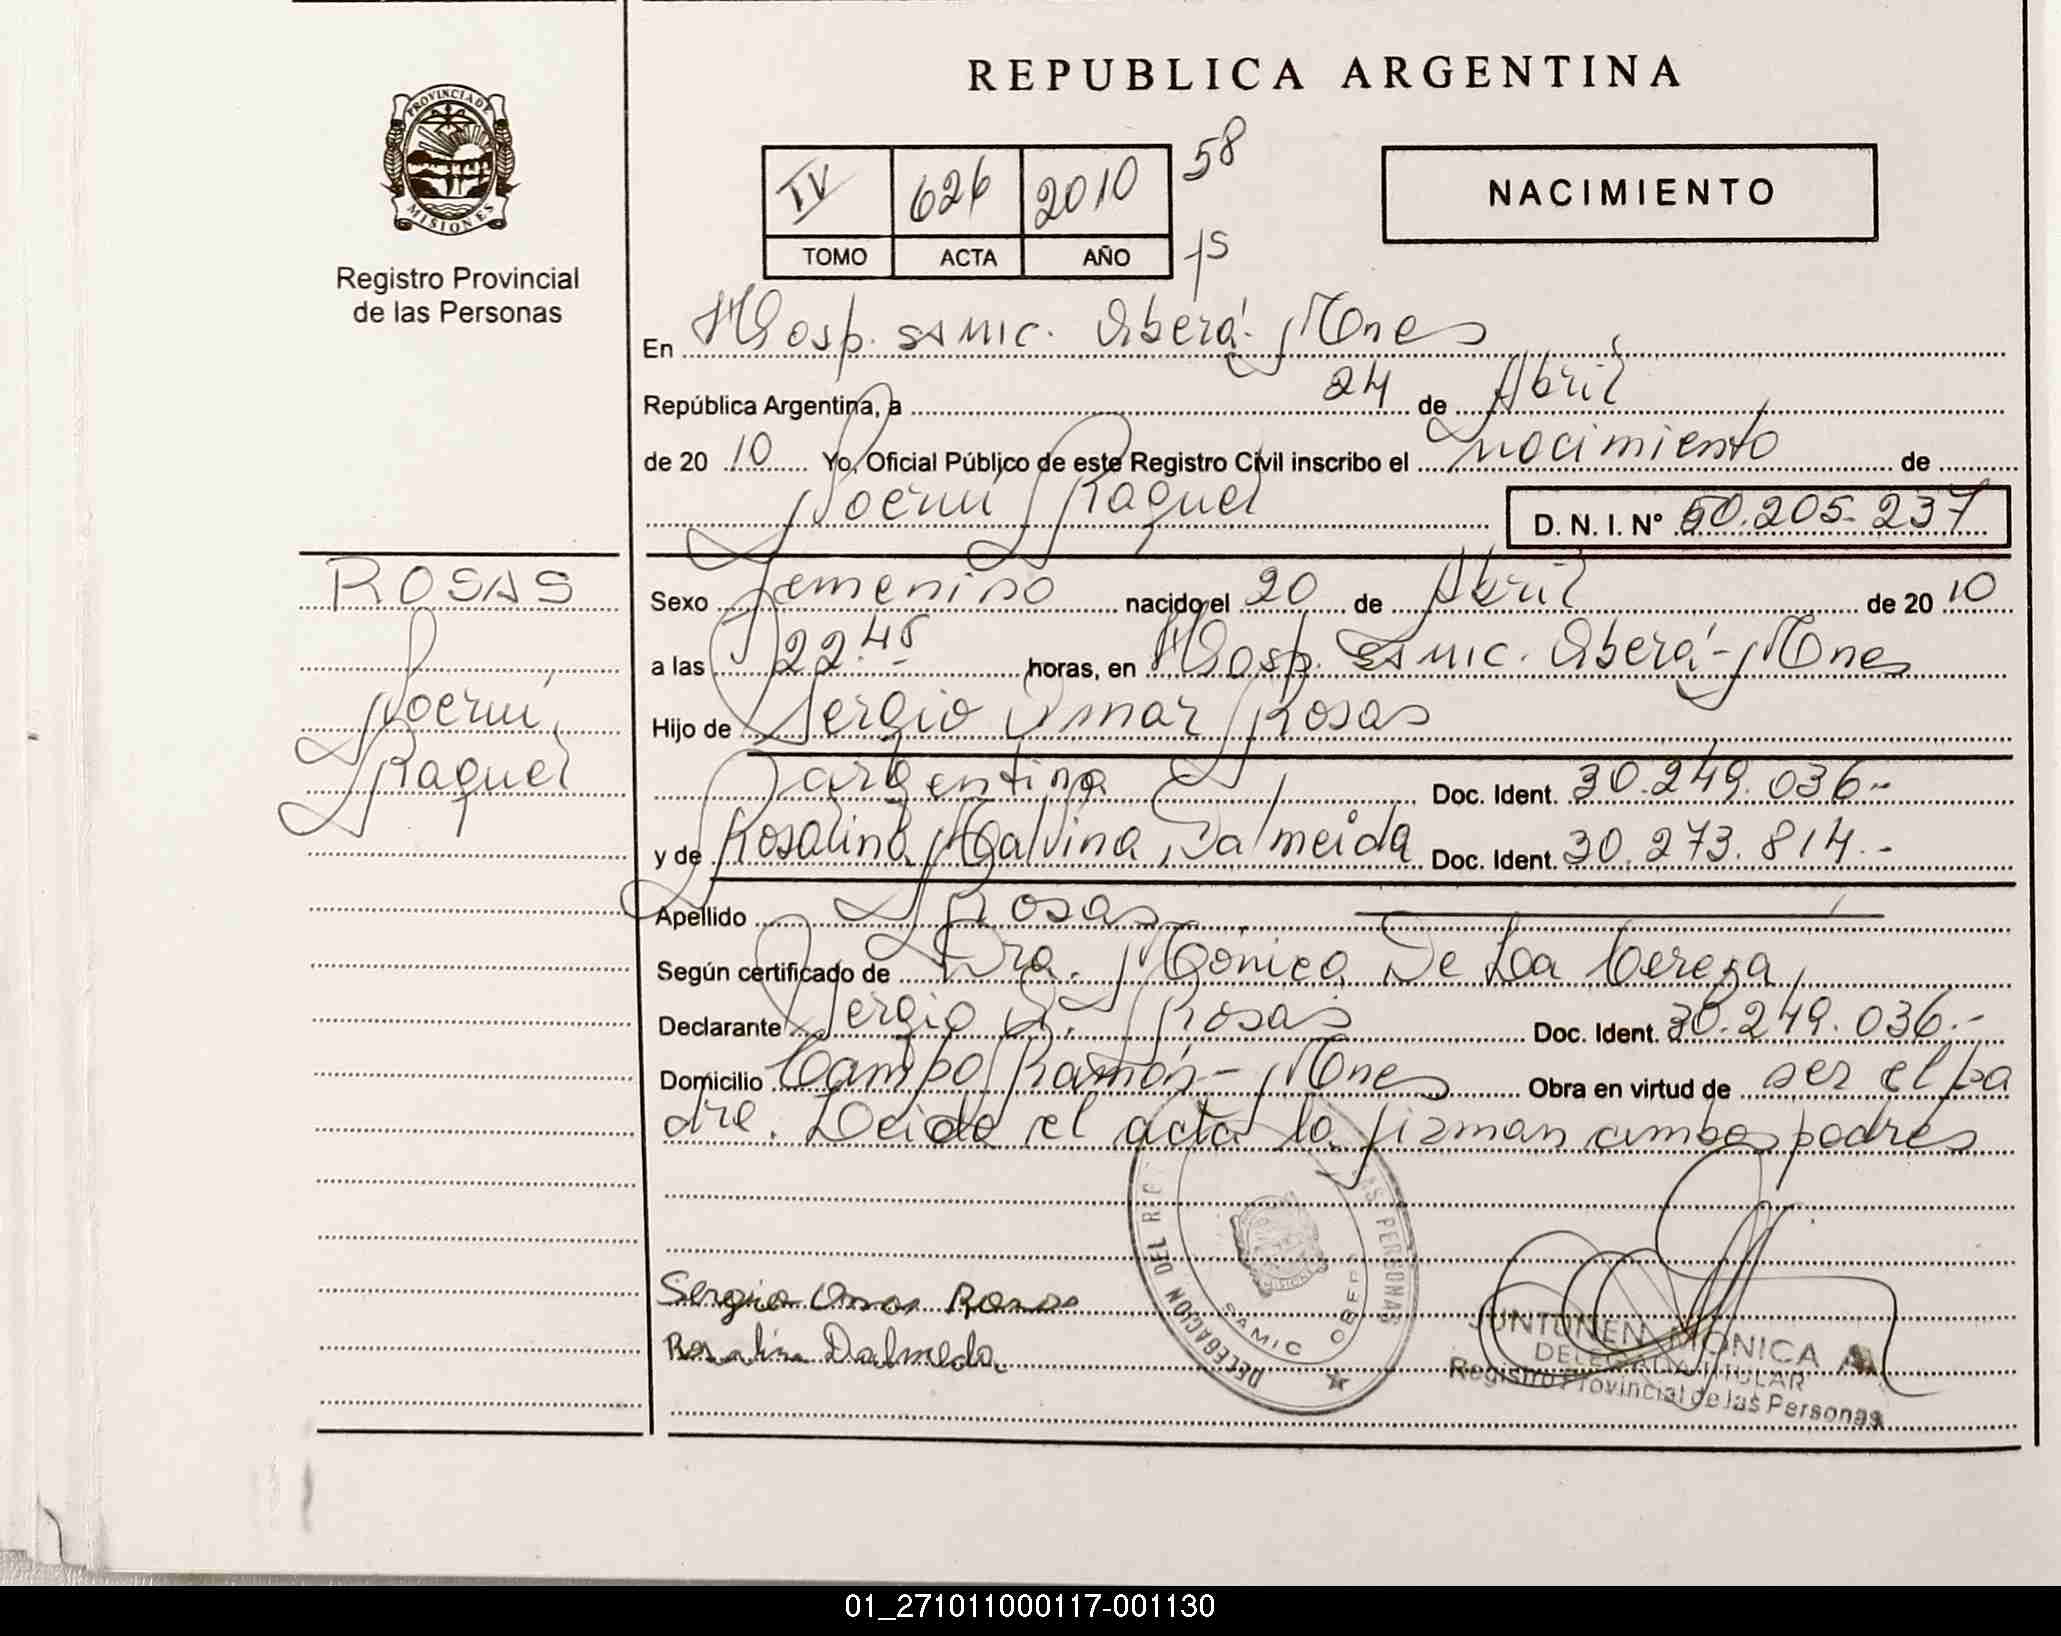 REPUBLICA ARGENTINA
PROVINCIA DE
MISIONES
Registro Provincial
de las Personas
IV 626 2010 58
TOMO ACTA AÑO 15
NACIMIENTO
En Hosp. SAMIC. Oberá - Mnes
República Argentina, a 24 de Abril
de 2010 Yo, Oficial Público de este Registro Civil inscribo el nacimiento de
Noemí Raquel D. N. I. Nº 50.205.237
ROSAS
Noemí
Raquel
Sexo femenino nacido el 20 de Abril de 2010
a las 22.45 horas, en Hosp. SAMIC. Oberá - Mnes
Hijo de Sergio Omar Rosas
argentina Doc. Ident. 30.249.036.-
y de Rosalina Malvina Dalmeida Doc. Ident. 30.273.814.-
Apellido Rosas
Según certificado de Dra. Mónica De La Cereza
Declarante Sergio O. Rosas Doc. Ident. 30.249.036.-
Domicilio Campo Ramón - Mnes Obra en virtud de ser el pa
dre. Leida el acta la firman ambos padres
Sergio Omar Rosas
Rosalina Dalmeida
DELEGACION DEL REG AS PERSONAS
SAMIC OBERA
JUNTUNEN MONICA A.
DELEGADA TITULAR
Registro Provincial de las Personas
01_271011000117-001130